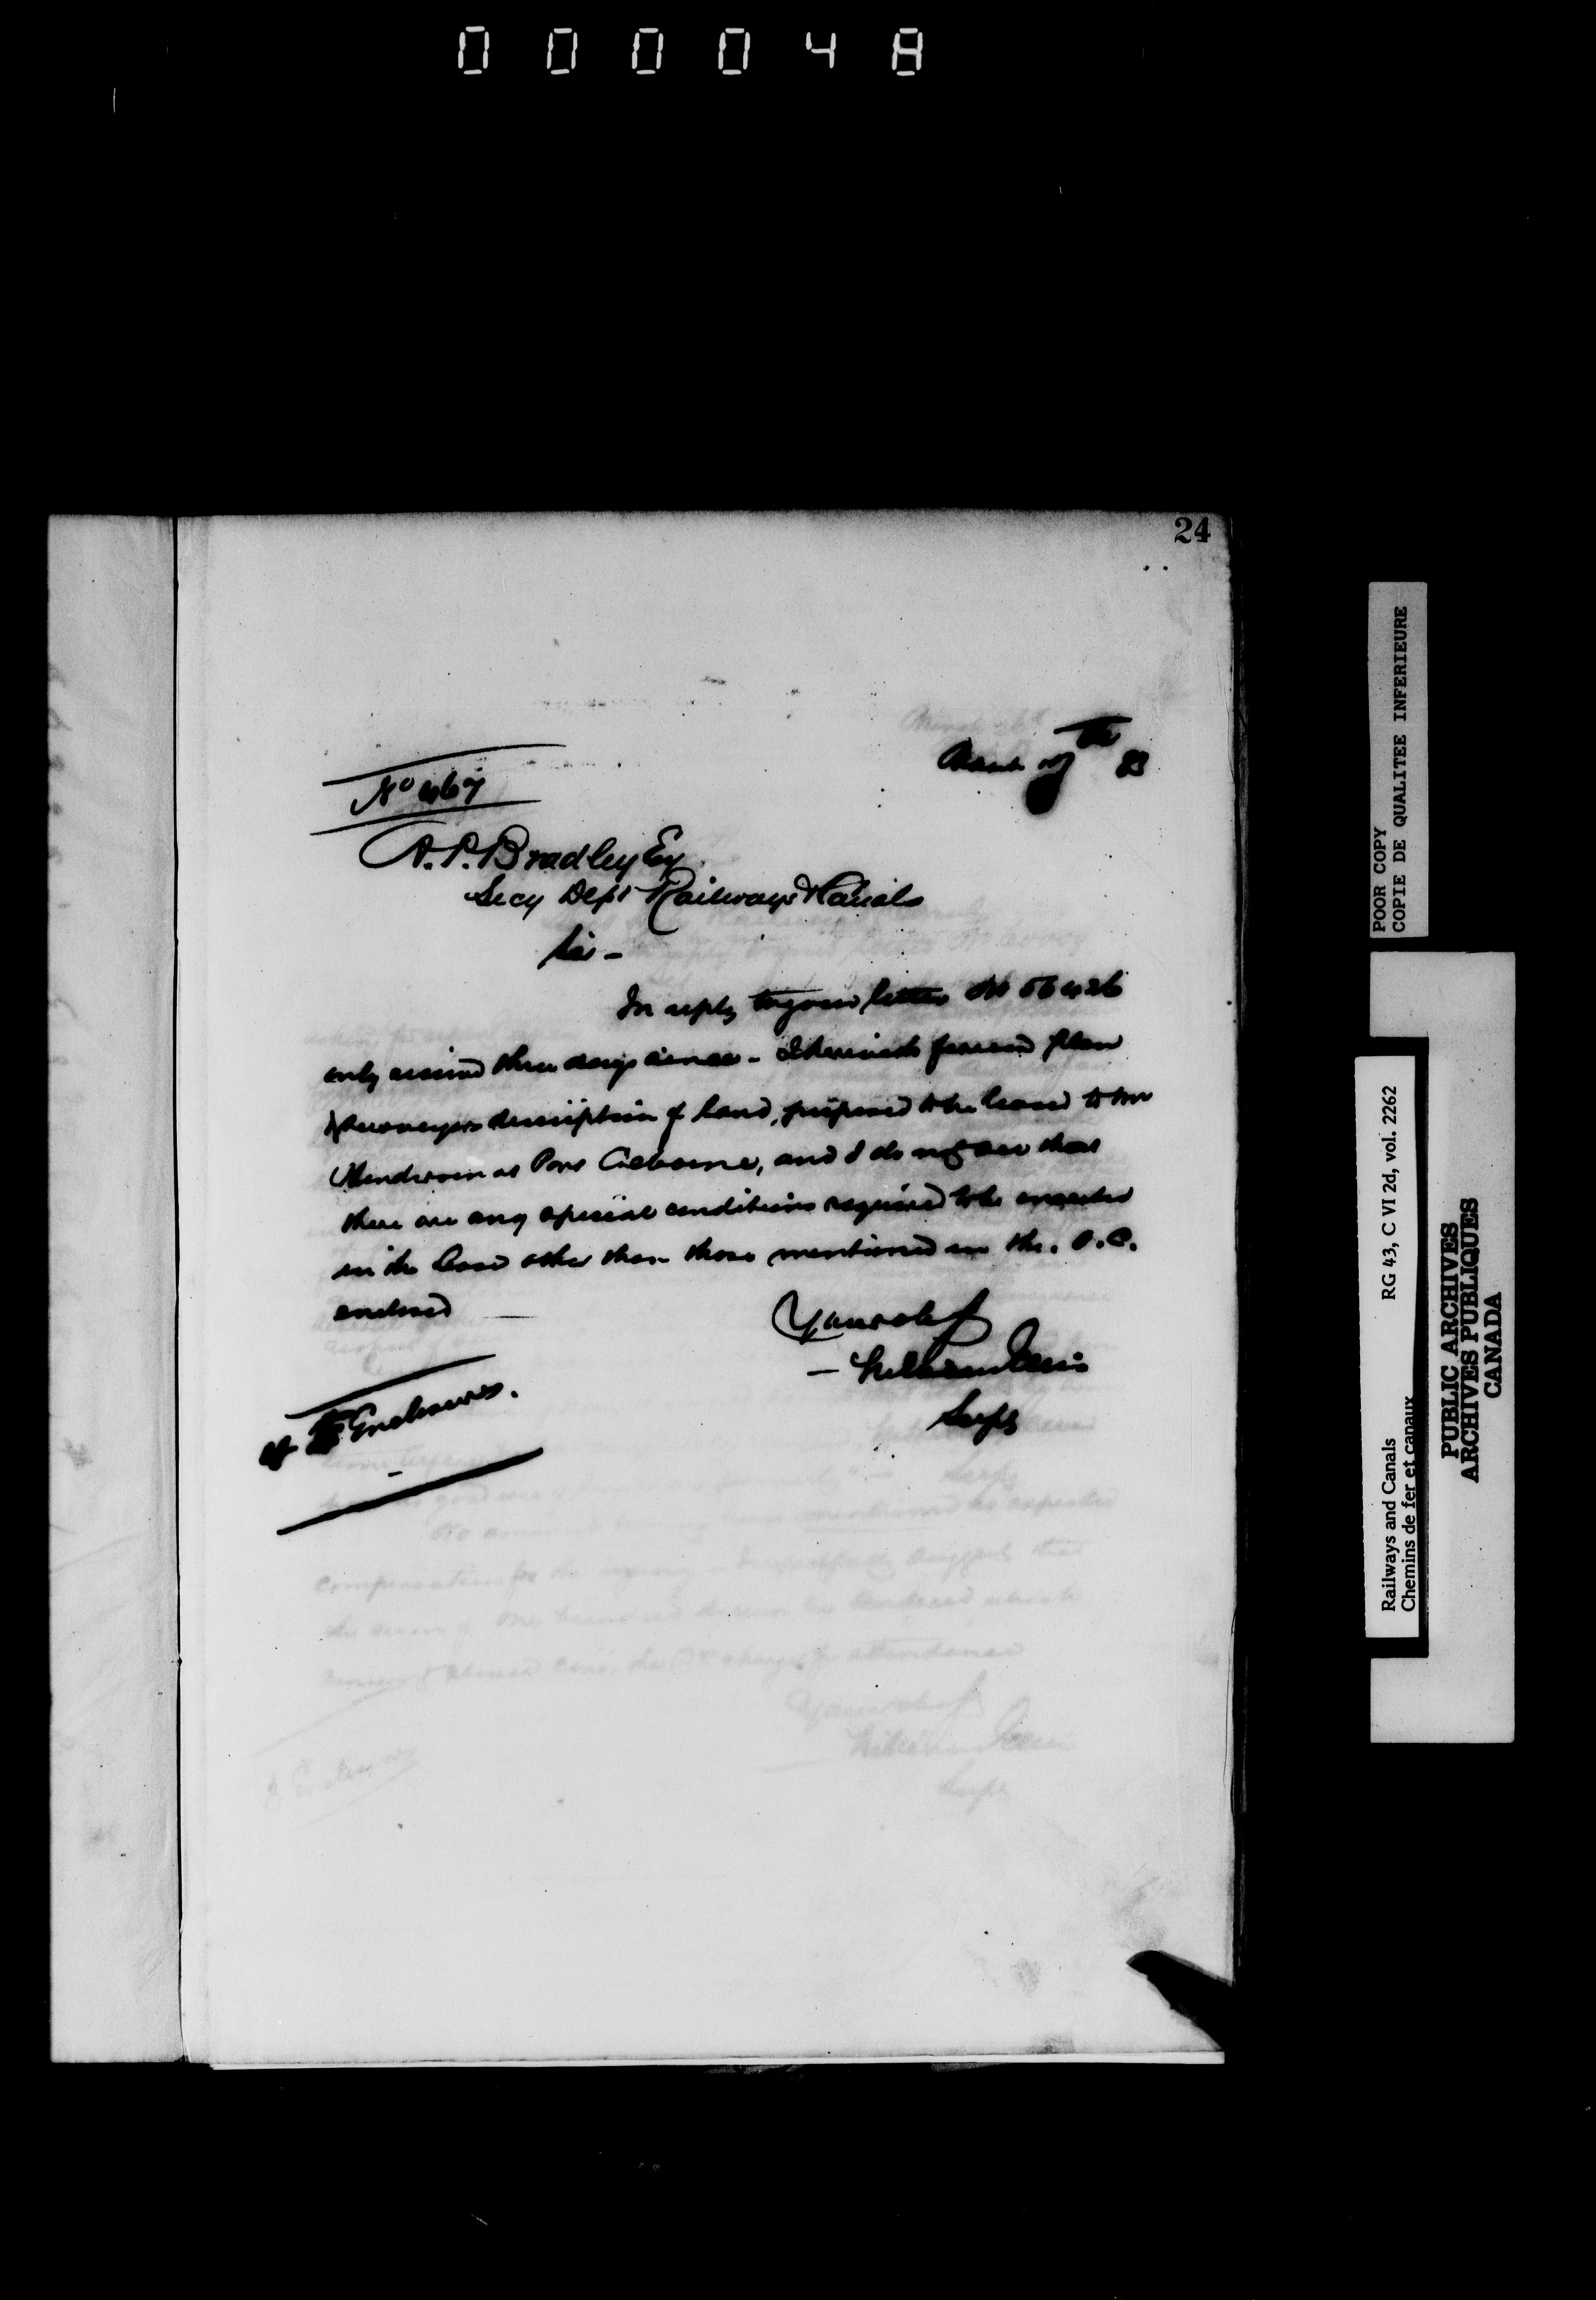 000048
24
March 27th 83
No 467
A. P. Bradley Esq
Secy Dept Railways & Canals
Sir -
In reply to your letter No 56426
only received three days since - I herewith forward plan
& surveyors description of land, proposed to be leased to Mr
Henderson at Port Colborne, and I do not see that
there are any special conditions required to be inserted
in the lease other than those mentioned in the O.C.
enclosed
Yours obt
- William Ellis
Supt
Enclosures.
POOR COPY
COPIE DE QUALITEE INFERIEURE
Railways and Canals RG 43, C VI 2d, vol. 2262
Chemins de fer et canaux
PUBLIC ARCHIVES
ARCHIVES PUBLIQUES
CANADA